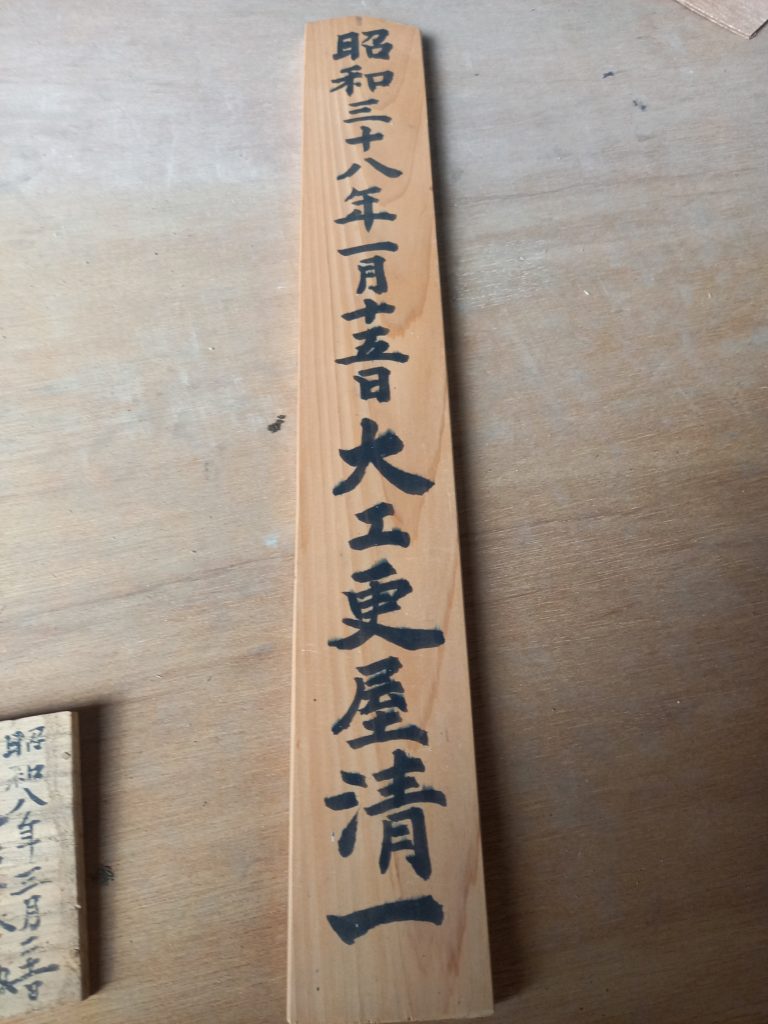 昭和三十八年一月十五日大工更屋清一
昭和八年三月二十